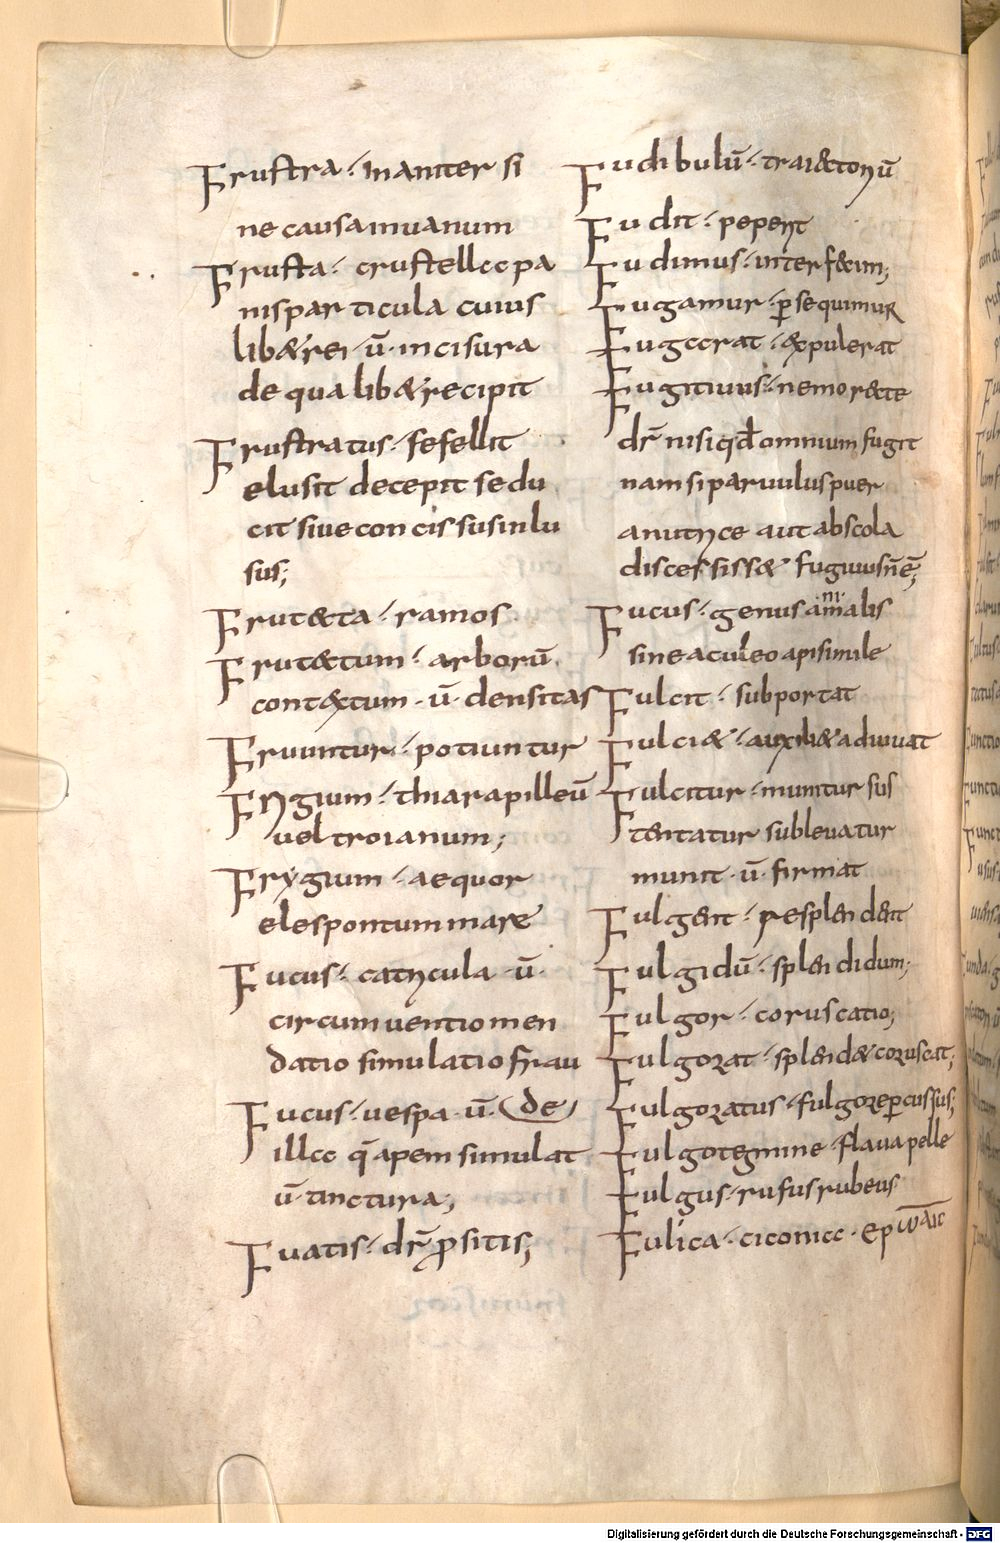 Frustra · inaniter si
ne causa inuanum
Frusta · crustellae pa
nis particula cuius
lib&rei · ū · incisura
de qua lib& recipit
Frustratus · fefellit
elusit decepit sedu
cit siue concissus inlu
sus;
Frut&ta · ramos
Frut&tum · arborū
cont&xtum · ū · densitas
Fruuntur · potiuntur
Frigium · thiara pilleū
uel troianum;
Frẏgium · aequor
elespontum mare
Fucus · catricula · ū ·
circumuentio men
datio simulatio frau
Fucus · uespa · ū · (de)
illae q̄ apem simulat
ū · tinctura;
Fuatis · dr̄ p̄ sitis;
Fudibulū · trai&toriū
Fudit · peperit
Fudimus · interf&im;
Fugamur · p̲sequimur
Fugaerat · &xpulerat
Fugitiuus · nemo r&te
dr̄ nisi qđ omnium fugit
nam si paruulus puer
a nutrice aut ab scola
discessiss& fugiuus n̄ ē;
Fucus · genus animalis
sine aculeo api simile
Fulcit · subportat
Fulci& · auxili& adiuuat
Fulcitur · munitur sus
tentatur subleuatur
munit · ū · firmat
Fulgent · resplendent
Fulgidū · splendidum;
Fulgor · coruscatio;
Fulgorat · splend& coruscat;
Fulgoratus · fulgore p̲cussus;
Fulgotegmine · flaua pelle
Fulgus · rufus rubeus
Fulica · ciconiae ·